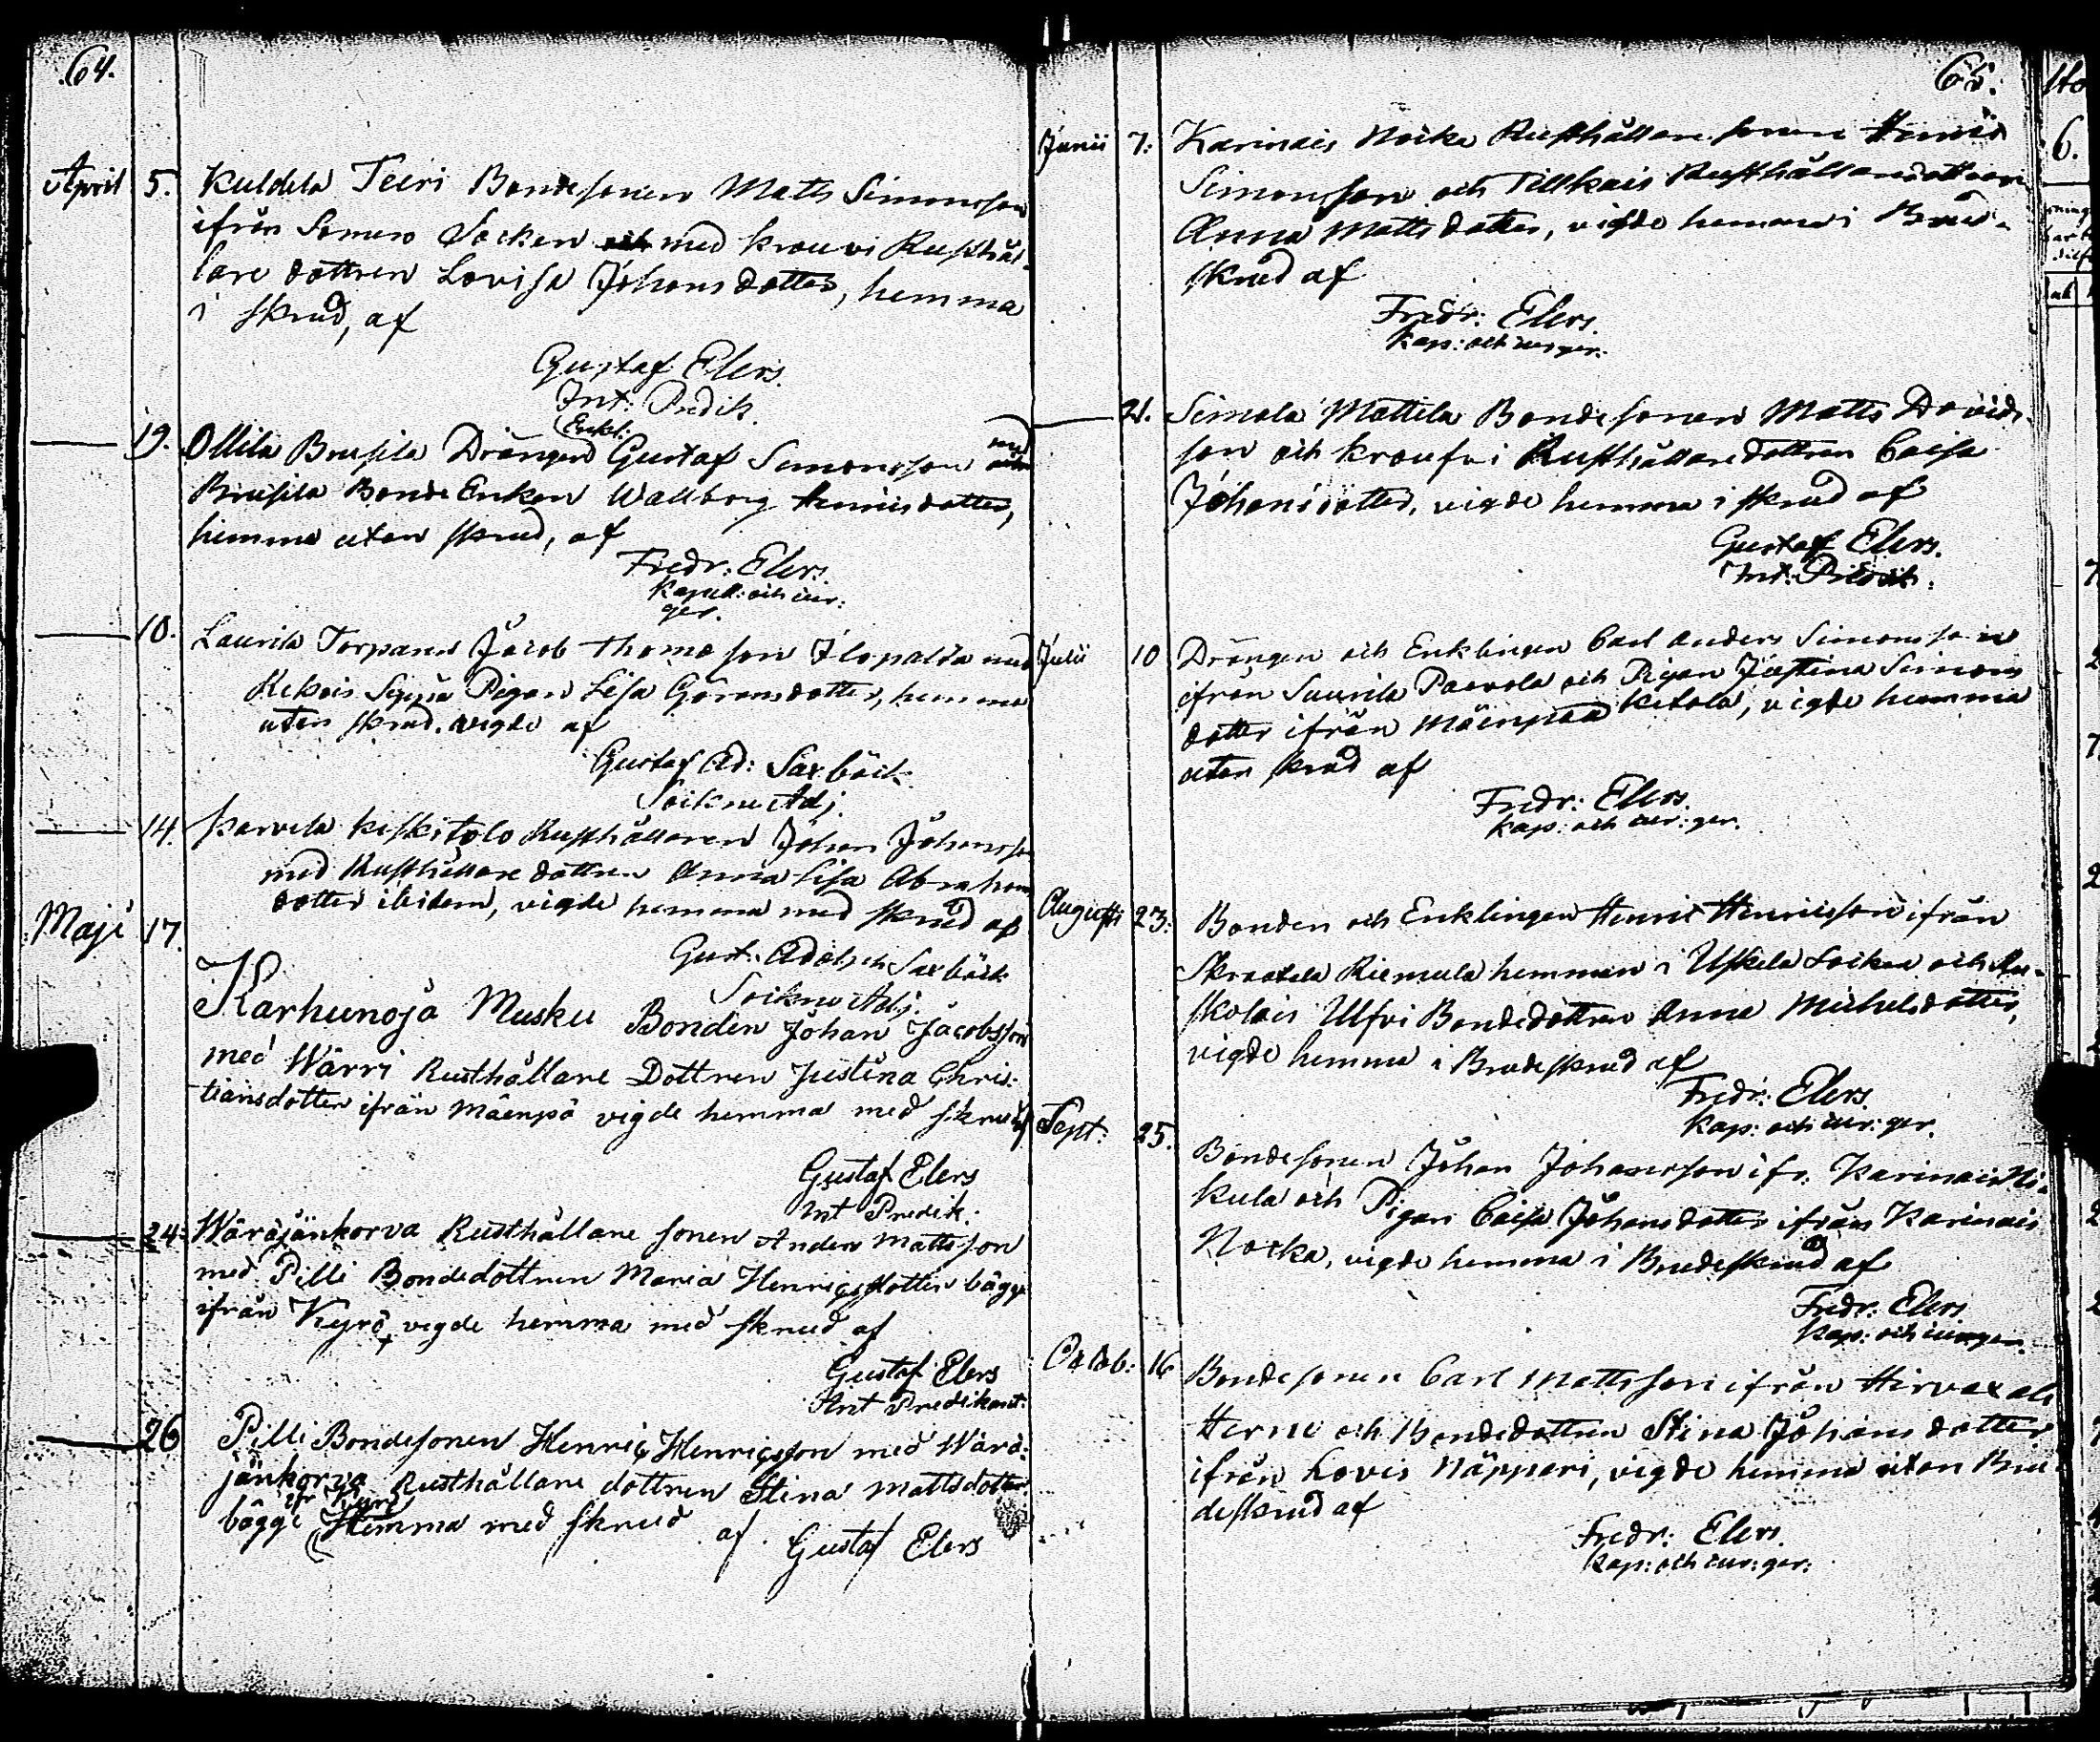 64.
April 5. Kuldela Teeri Bondesonen Matts Simonsson
ifrån Somero Socken och med krouvi Rusthål-
lare dottren Lovisa Johans dotter, hemma
i skrud, af
Gustaf Elers.
Int: Predik.
Enkl:
19. Ollila Brusila Drängen Gustaf Simonsson med
Brusila Bonde Enkan Wallborg Henricsdotter,
hemma utan skrud, af
Fredr: Elers.
Kapell: och cur:
ger.
10. Laurila Torparen Jacob Thomasson Ilopalda med
Kekois Seppä Pigan Lisa Göransdotter, hemma
utan skrud. vigde af
Gustaf Ad: Saxbäck
Sockne Adj.
14. Karvela Keskitalo Rusthållaren Johan Johansson
med Rusthållare dottren Anna Lisa Abrahams
dotter ibidem, vigde hemma med skrud af
Gust. Adolph Saxbäck
Sockne Adj.
Maji 17. Karhunoja Musku Bonden Johan Jacobsson
med Wärri Rusthållare Dottren Justina Chris-
tiansdotter ifrån Mäenpä vigde hemma med skrud af
Gustaf Elers
Int Predik:
24. Wäräjänkorva Rusthållare sonen Anders Mattsson
med Pilli Bondedottren Maria Henricsdotter bägge
ifrån Kyrö, vigde hemma med skrud af
Gustaf Elers
Int Predikant.
26 Pilli Bondesonen Henric Henricsson med Wärä-
jänkorva Rusthållare dottren Stina Mattsdotter
ifr Kyrö
bägge Hemma med skrud af Gustaf Elers
65.
Junii 7: Karinais Nocka Rusthållare sonen Henric
Simonsson och Tillkais Rusthållaredottren
Anna Mattsdotter, vigde hemma i Brud-
skrud af
Fredr: Elers.
Kap: och cur ger:
21. Simola Mattila Bondesonen Matts Davids-
son och kroufvi Rusthållaredottren Caisa
Johansdotter, vigde hemma i skrud af
Gustaf Elers.
Int: Predik:
Julii 10 Drängen och Enklingen Carl Anders Simonsson
ifrån Saurila Paavola och Pigan Justina Simons
dotter ifrån Mäenpää Ketola, vigde hemma
utan skrud af
Fredr: Elers.
Kap: och cur: ger.
Augusti 23: Bonden och Enklingen Henric Henricsson ifrån
Skraatila Riemula hemman i Uskela Socken och Au-
skolais Ulfvi Bondedottren Anna Michelsdotter,
vigde hemma i Brudeskrud af
Fredr: Elers.
Kap: och cur: ger.
Sept: 25. Bondesonen Johan Johansson ifr. Karinais Ni-
kula och Pigan Caisa Johansdotter ifrån Karinais
Nocka, vigde hemma i Brudeskrud af
Fredr: Elers.
Kap: och cur ger.
Octob: 16 Bondesonen Carl Mattsson ifrån Hirvas als
Herne och Bondedottren Stina Johans dotter
ifrån Lovis Näppari, vigde hemma utan Bru-
deskrud af
Fredr: Elers.
Kap: och cur: ger: